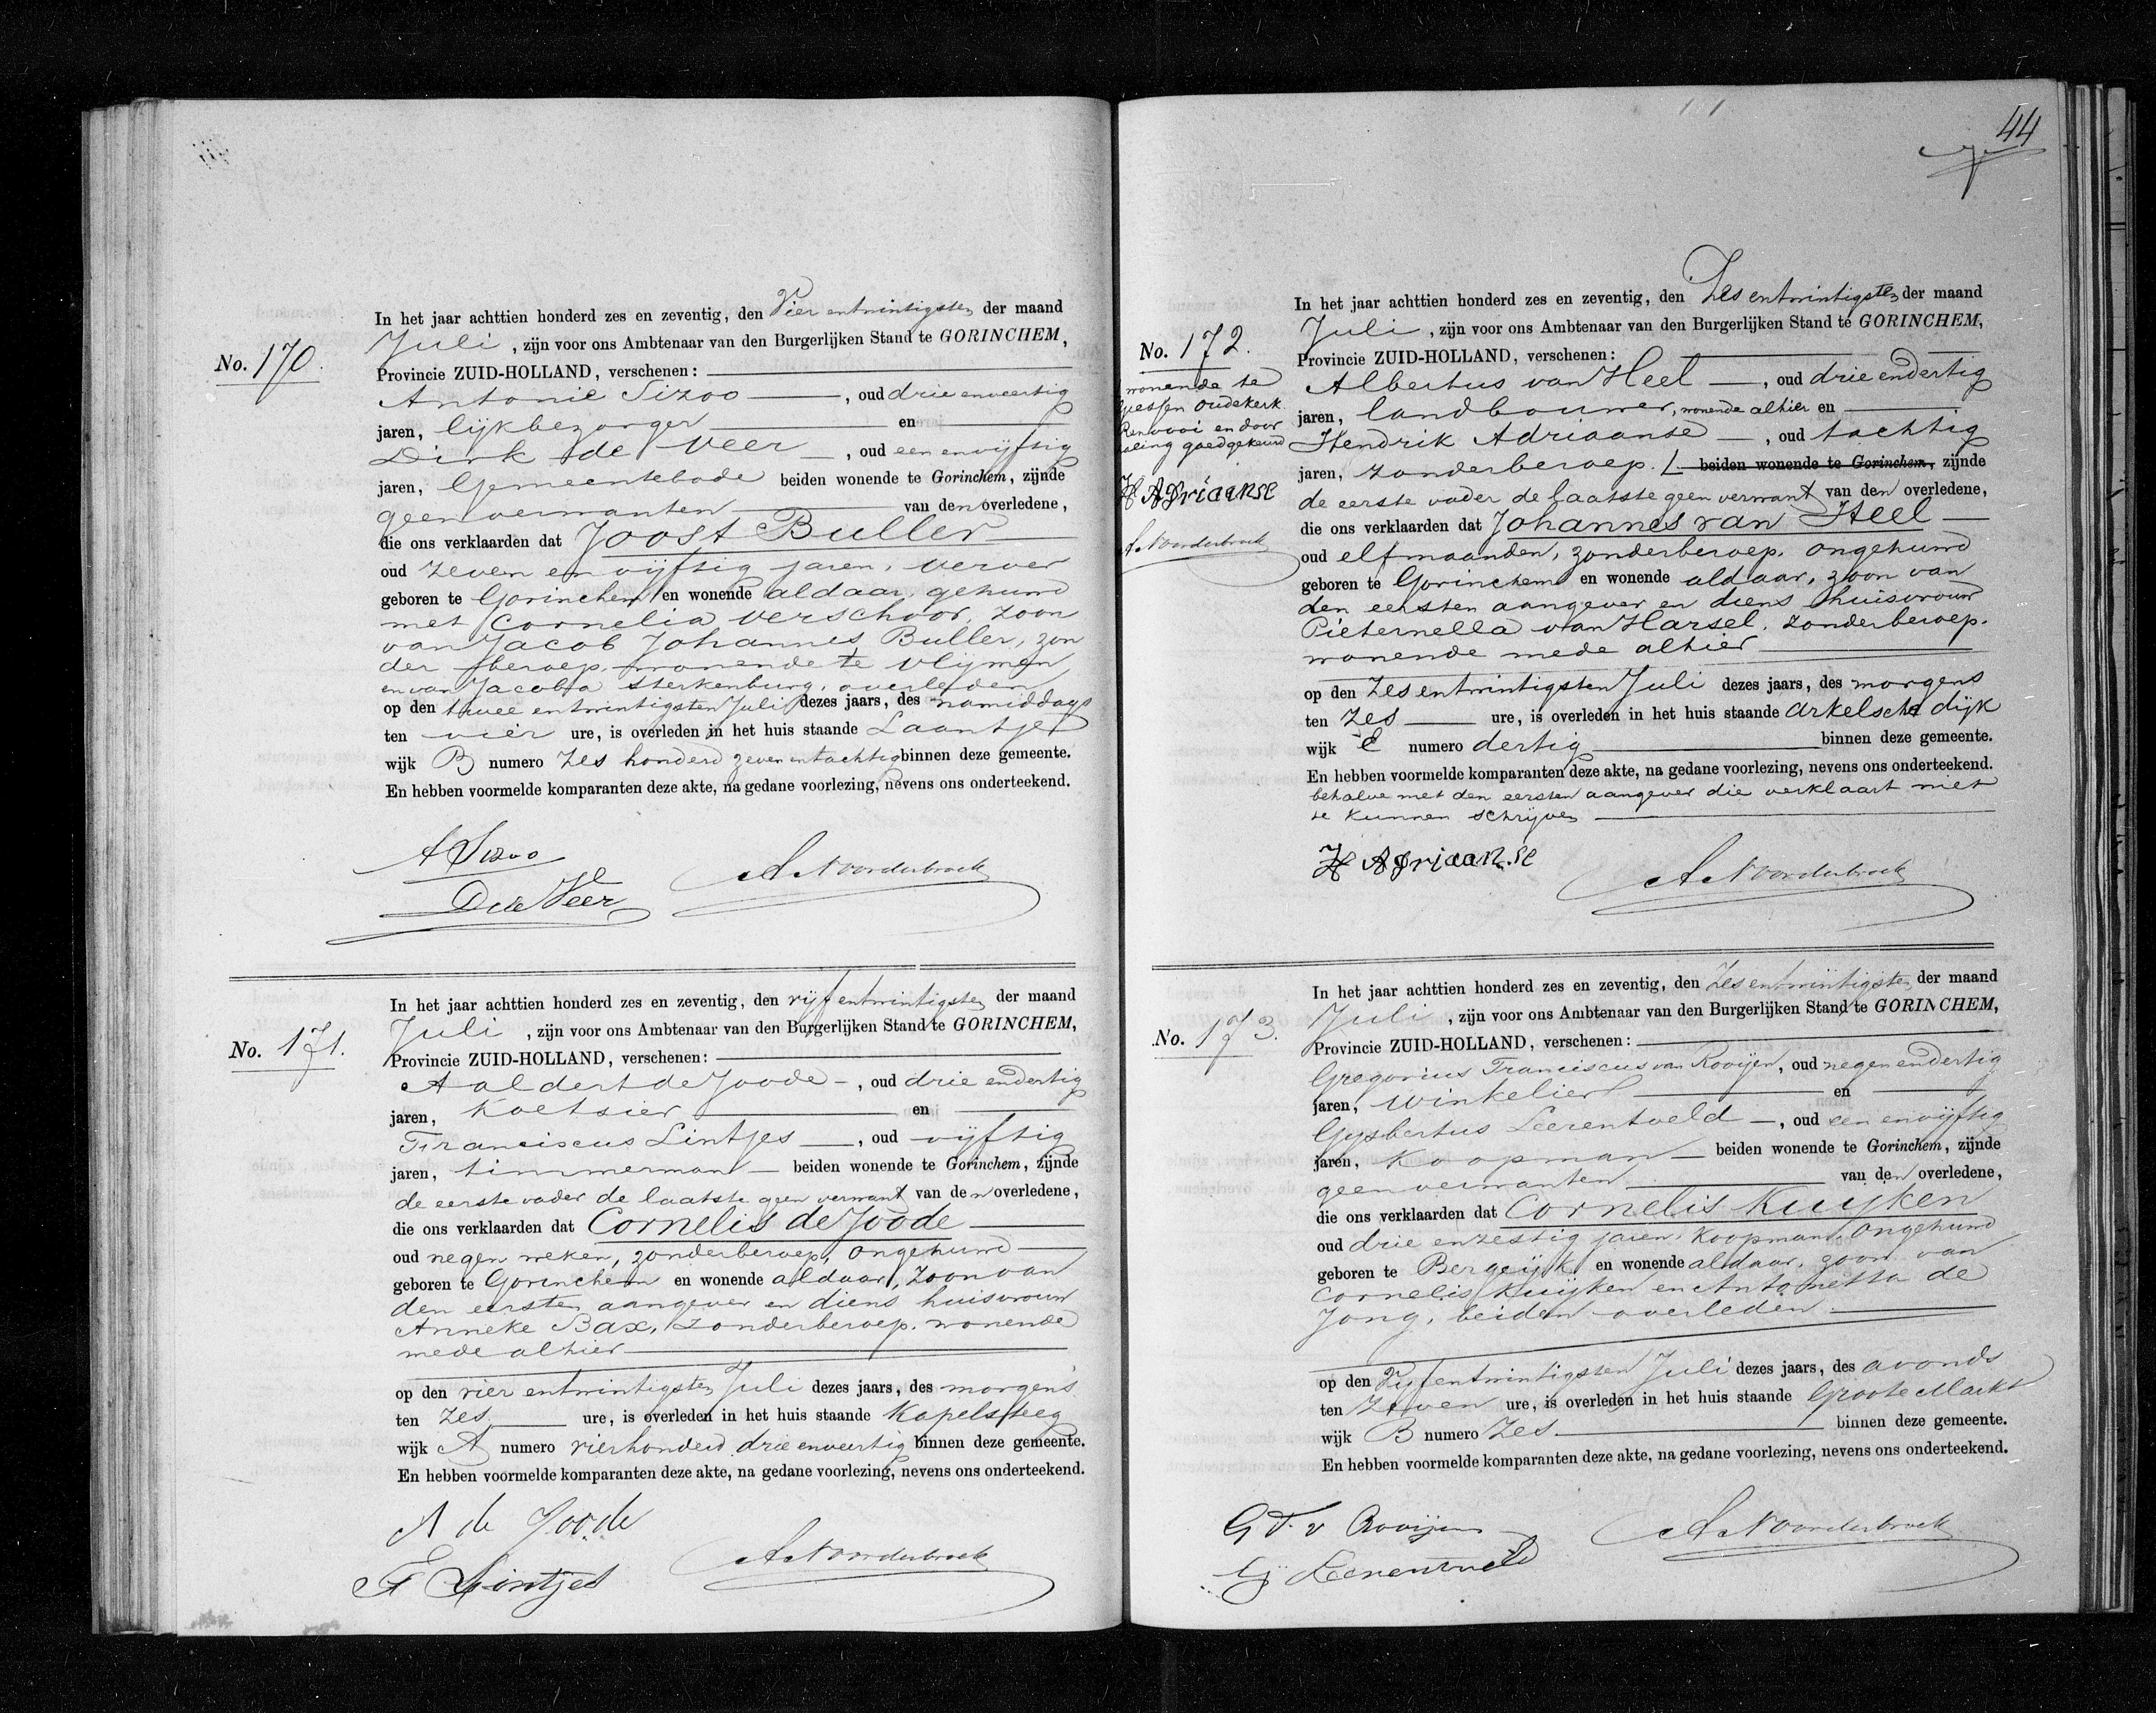 No. 170.
In het jaar achttien honderd zes en zeventig, den Vier entwintigsten der maand
Juli, zijn voor ons Ambtenaar van den Burgerlijken Stand te GORINCHEM,
Provincie ZUID-HOLLAND, verschenen:
Antonie Sizoo, oud drie enveertig
jaren, lijkbezorger en
Dirk de Veer, oud een envijftig
jaren, Gemeentebode beiden wonende te Gorinchem, zijnde
geen verwanten van den overledene,
die ons verklaarden dat Joost Buller
oud zeven en vijftig jaren, verver
geboren te Gorinchem en wonende aldaar, gehuwd
met Cornelia Verschoor, zoon
van Jacob Johannes Buller, zon
der beroep wonende te Vlijmen
en van Jacoba Sterkenburg, overleden
op den twee entwintigsten Juli dezes jaars, des namiddags
ten vier ure, is overleden in het huis staande Laantje
wijk B numero zes honderd zeven entachtig binnen deze gemeente.
En hebben voormelde komparanten deze akte, na gedane voorlezing, nevens ons onderteekend.
A Sizoo
D de Veer
A Noorderbroek
No. 171.
In het jaar achttien honderd zes en zeventig, den vijf entwintigsten der maand
Juli, zijn voor ons Ambtenaar van den Burgerlijken Stand te GORINCHEM,
Provincie ZUID-HOLLAND, verschenen:
Aaldert de Joode -, oud drie endertig
jaren, Koetsier en
Franciscus Lintjes, oud vijftig
jaren, timmerman beiden wonende te Gorinchem, zijnde
de eerste vader de laatste geen verwant van den overledene,
die ons verklaarden dat Cornelis de Joode
oud negen weken, zonder beroep, ongehuwd
geboren te Gorinchem en wonende aldaar, zoon van
den eersten aangever en diens huisvrouw
Anneke Bax, zonder beroep, wonende
mede alhier
op den vier entwintigsten Juli dezes jaars, des morgens
ten zes ure, is overleden in het huis staande Kapelsteeg
wijk A numero vierhonderd drie enveertig binnen deze gemeente.
En hebben voormelde komparanten deze akte, na gedane voorlezing, nevens ons onderteekend.
A de Joode
F Lintjes
A Noorderbroek
44
No. 172.
wonende te
Giessen Oudekerk
Renvooi en door
haling goedgekeurd
H Adriaanse
A Noorderbroek
In het jaar achttien honderd zes en zeventig, den Zes entwintigsten der maand
Juli, zijn voor ons Ambtenaar van den Burgerlijken Stand te GORINCHEM,
Provincie ZUID-HOLLAND, verschenen:
Albertus van Heel, oud drie endertig
jaren, landbouwer, wonende alhier en
Hendrik Adriaanse, oud tachtig
jaren, zonder beroep. / beiden wonende te Gorinchem, zijnde
de eerste vader de laatste geen verwant van den overledene,
die ons verklaarden dat Johannes van Heel
oud elf maanden, zonder beroep, ongehuwd
geboren te Gorinchem en wonende aldaar, zoon van
den eersten aangever en diens huisvrouw
Pieternella van Harsel, zonder beroep.
wonende mede alhier
op den Zes entwintigsten Juli dezes jaars, des morgens
ten zes ure, is overleden in het huis staande Arkelsche dijk
wijk E numero dertig binnen deze gemeente.
En hebben voormelde komparanten deze akte, na gedane voorlezing, nevens ons onderteekend.
behalve met den eersten aangever die verklaart niet
te kunnen schrijven
H Adriaanse
A Noorderbroek
No. 173.
In het jaar achttien honderd zes en zeventig, den Zes entwintigsten der maand
Juli, zijn voor ons Ambtenaar van den Burgerlijken Stand te GORINCHEM,
Provincie ZUID-HOLLAND, verschenen:
Gregorius Franciscus van Rooijen, oud negen endertig
jaren, Winkelier en
Gijsbertus Leerentveld -, oud een envijftig
jaren, Koopman beiden wonende te Gorinchem, zijnde
geen verwanten van den overledene,
die ons verklaarden dat Cornelis Kuijken
oud drie enzestig jaren, Koopman, ongehuwd
geboren te Bergeijk en wonende aldaar, zoon van
Cornelis Kuijken en Antonetta de
Jong, beiden overleden
op den Vijf entwintigsten Juli dezes jaars, des avonds
ten zeven ure, is overleden in het huis staande Groote Markt
wijk B numero zes binnen deze gemeente.
En hebben voormelde komparanten deze akte, na gedane voorlezing, nevens ons onderteekend.
G F v Rooijen
Gij Leerentveld
A Noorderbroek